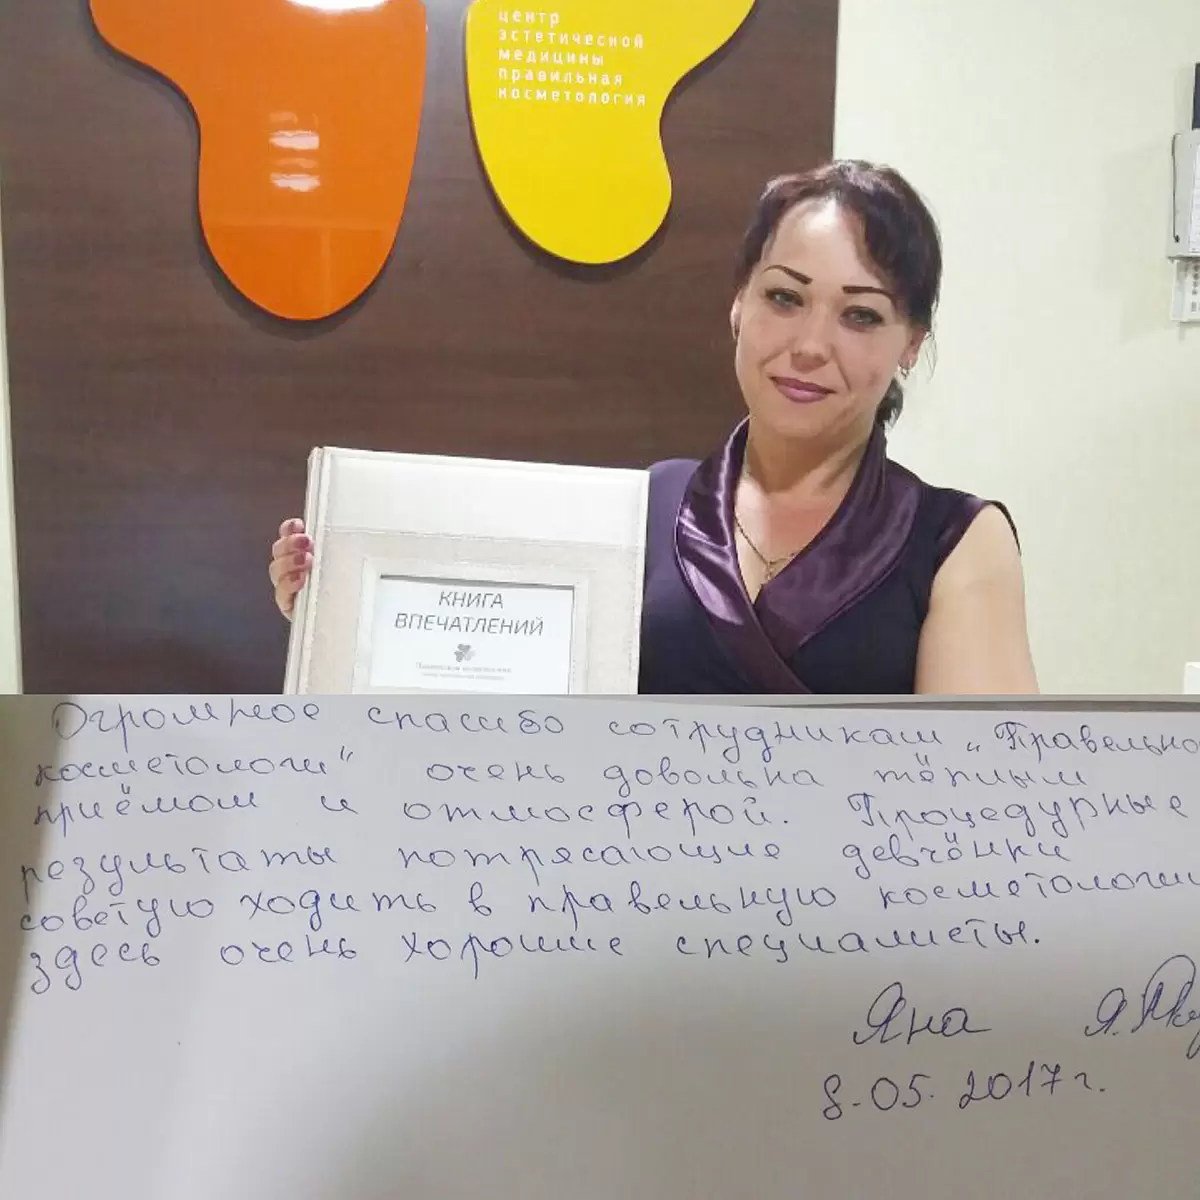 центр
эстетической
медицины
правильная
косметология
КНИГА
ВПЕЧАТЛЕНИЙ
Огромное спасибо сотрудникам „Правельно
косметологи" очень довольна тёплым
приёмом и отмосферой. Процедурные
результаты потрясающие девчёнки
советую ходить в правельную косметологии
здесь очень хорошие специалисты.
Яна Я.
8.05.2017г.